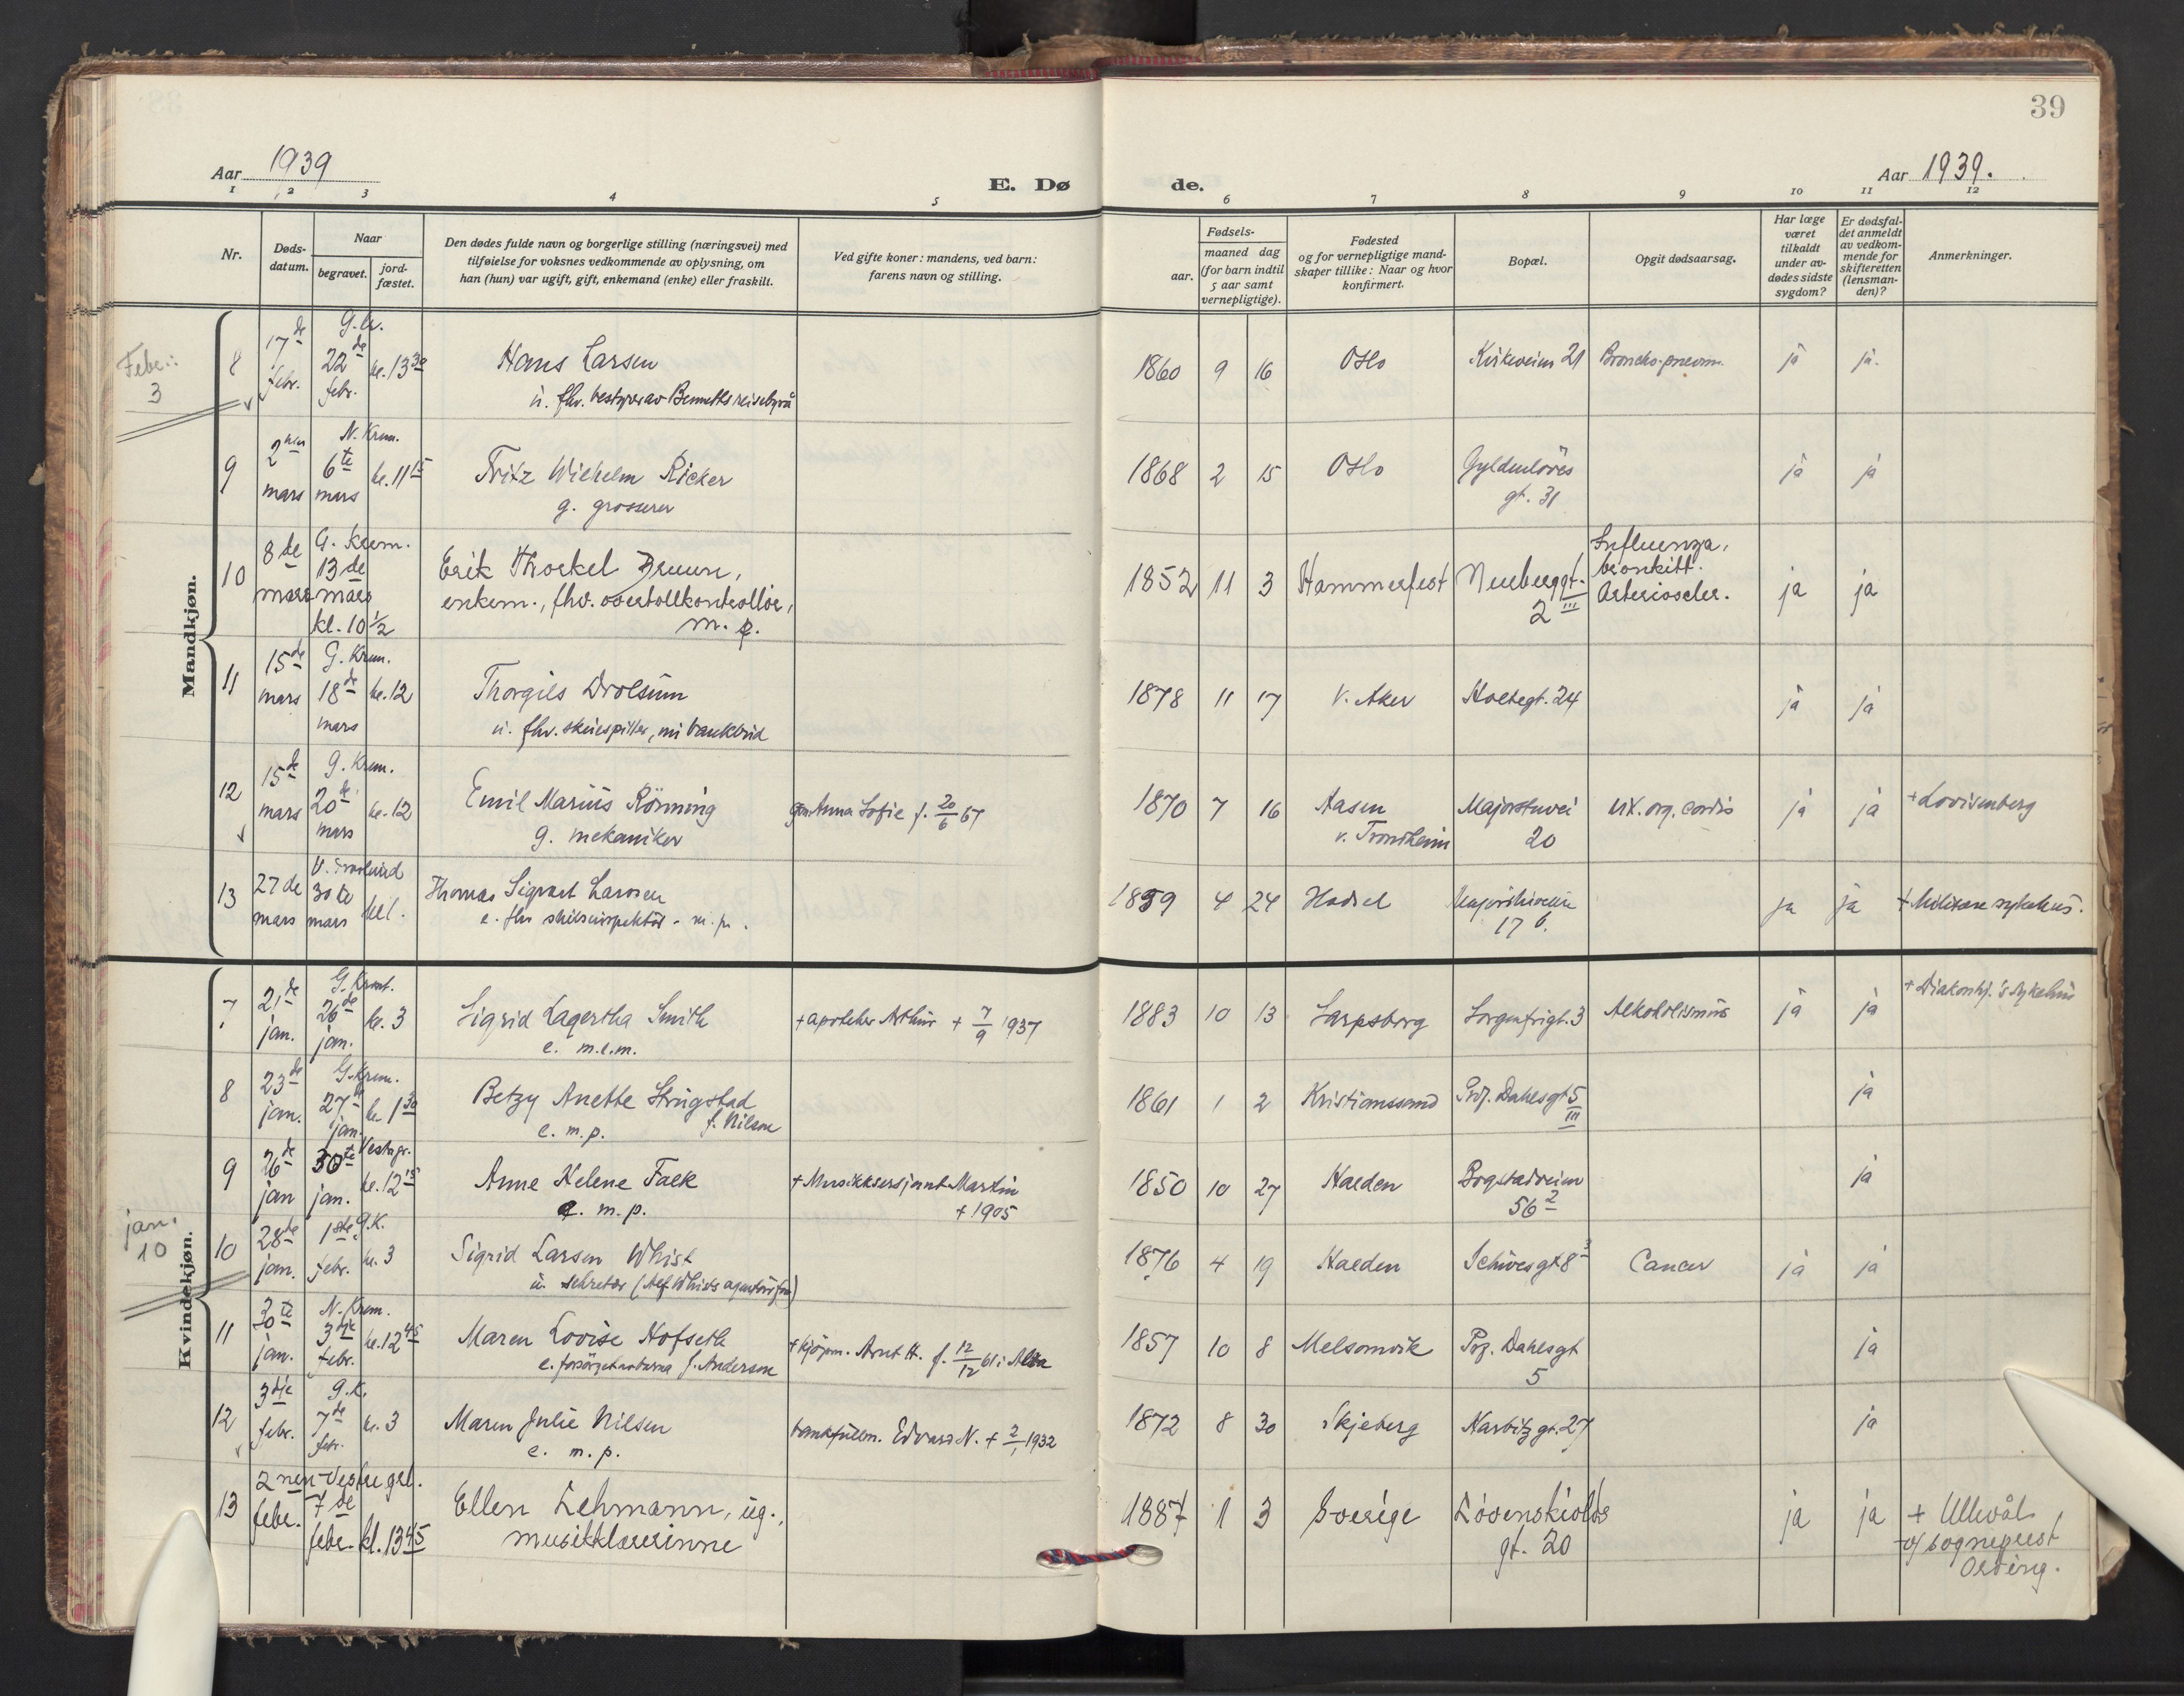 39
Aar 1939
E. Dø
de.
Aar 1939.
1 2 3 4 5 6 7 8 9 10 11 12
Nr.
Døds-
datum.
Naar
begravet.
jord-
fæstet.
Den dødes fulde navn og borgerlige stilling (næringsvei) med
tilføielse for voksnes vedkommende av oplysning, om
han (hun) var ugift, gift, enkemand (enke) eller fraskilt.
Ved gifte koner: mandens, ved barn:
farens navn og stilling.
Fødsels-
aar.
maaned dag
(for barn indtil
5 aar samt
vernepligtige).
Fødested
og for vernepligtige mand-
skaper tillike: Naar og hvor
konfirmert.
Bopæl.
Opgit dødsaarsag.
Har læge
været
tilkaldt
under av-
dødes sidste
sygdom?
Er dødsfal-
det anmeldt
av vedkom-
mende for
skifteretten
(lensman-
den)?
Anmerkninger.
Mandkjøn.
Febr.:
3
8 17de febr. 22de febr. kl. 13 30
Hans Larsen
u. fhv. bestyrer av Bennetts reisebyrå
1860 9 16 Oslo Kirkeveien 21 Broncho-pneum. ja ja.
9 2nen mars N. Krem. 6te mars kl. 11 15
Fritz Wilhelm Ricker
g. grosserer
1868 2 15 Oslo Gyldenløves
gt. 31 ja ja
10 8de mars G. Krem. 13de mars kl. 10 1/2
Erik Thorkel Bruun,
enkem., fhv. overtollkontrollør,
m. p.
1852 11 3 Hammerfest Neuberggt.
2 III
Influenza,
bronkitt.
Arterioscler. ja ja
11 15de mars G. Krem. 18de mars kl. 12
Thorgils Drolsum
u. fhv. skuespiller, nu bankbud
1878 11 17 V. Aker Holtegt. 24 ja ja
12 15de mars G. Krem. 20de mars kl. 12
Emil Marius Rönning
g. mekaniker
Anna Sofie f. 20/6 67
1870 7 16 Aasen
v. Trondheim Majorstuvei
20 vit. org. cordis ja ja + Lovisenberg
13 27de mars 30te mars
Thomas Sigvart Larssen
e. fhv skoleinspektør - m. p.
1859 4 24 Hadsel Majorstuveien
17 b. ja ja + Militære sykehus.
Kvindekjøn.
7 21de jan. G. Kremt. 26de jan. kl. 3
Sigrid Lagertha Smith
e. m.e.m.
+ apoteker Arthur + 7/9 1937
1883 10 13 Sarpsborg Sorgenfrigt. 3 Alkoholismus ja ja + Diakonhj.'s sykehus
8 23de jan. G. Krem. 27de jan. kl. 1 30
Betzy Anette Strugstad
e. m. p. f. Nilson
1861 1 2 Kristianssand Prof. Dahlsgt 5
III ja
9 26de jan 30te jan. Vestre gr. kl. 12 15
Anne Helene Falk
e. m. p.
+ Musikksersjant Martin
+ 1905
1850 10 27 Halden Bogstadveien
56 2 ja
jan.
10
10 28de jan. 1ste febr. G.K. kl. 3
Sigrid Larsen Whist
u. sekretær
1876 4 19 Halden Schivesgt 8 3 Cancer ja ja
11 30te jan. N. Krem. 3dje febr. kl. 12 45
Maren Lovise Hofseth
e. f. Anderson
+ kjøpm. Arnt H. f. 12/12 61 i Alta
1857 10 8 Melsomvik Prof. Dahlsgt
5 ja
12 3dje febr. G.K. 7de febr. kl. 3
Maren Julie Nilsen
e. m. p.
bankfullm. Edvard N. + 2/1 1932
1872 8 30 Skjeberg Harbitzgt. 27 ja
13 2nen febr. Vestre grl. 7de febr. kl. 13 45
Ellen Lehmann, ug.,
musikklærerinne
1887 1 3 Sverige Løvenskiolds
gt. 20 ja ja + Ullevål
v/ sogneprest
Olding.